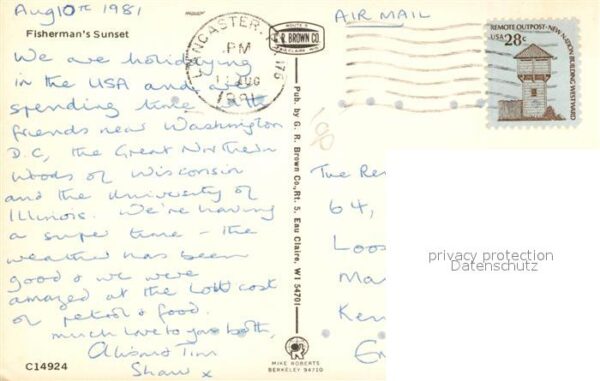 Aug 10th 1981
Fisherman's Sunset
We are holidaying
in the USA and are
spending time with
friends near Washington
D.C, the Great Northern
Woods of Wisconsin
and the University of
Illinois. We're having
a super time - the
weather has been
good & we were
amazed at the low cost
of petrol & food.
much love to you both,
Alison & Tim
Shaw x
C14924
LANCASTER,
PM
AUG
ROUTE 5
G. R. BROWN CO.
EAU CLAIRE, WIS.
Pub. by G. R. Brown Co., Rt. 5, Eau Claire, WI 54701
MIKE ROBERTS
BERKELEY 94710
AIR MAIL
REMOTE OUTPOST · NEW NATION BUILDING WESTWARD
USA 28c
The Re
64,
Loos
Ma
Ken
privacy protection
Datenschutz